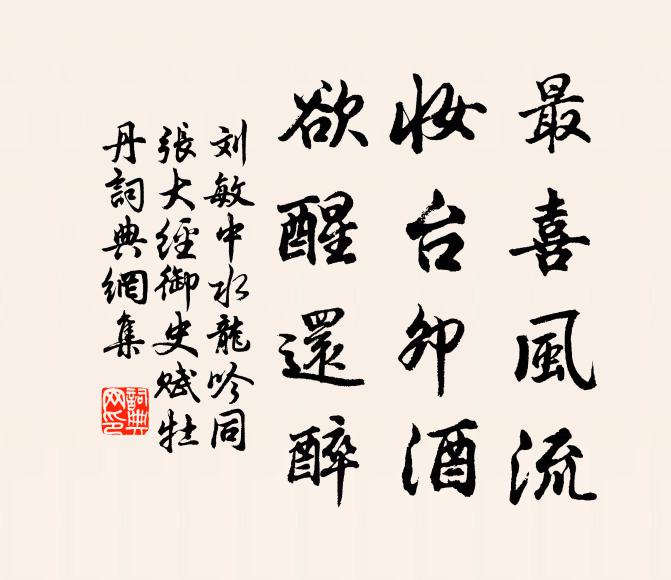 最喜風流
妝台卯酒
欲醒還醉
刘敏中水龍吟同
張大經御史賦牡
丹詞典網集
詞典
网印